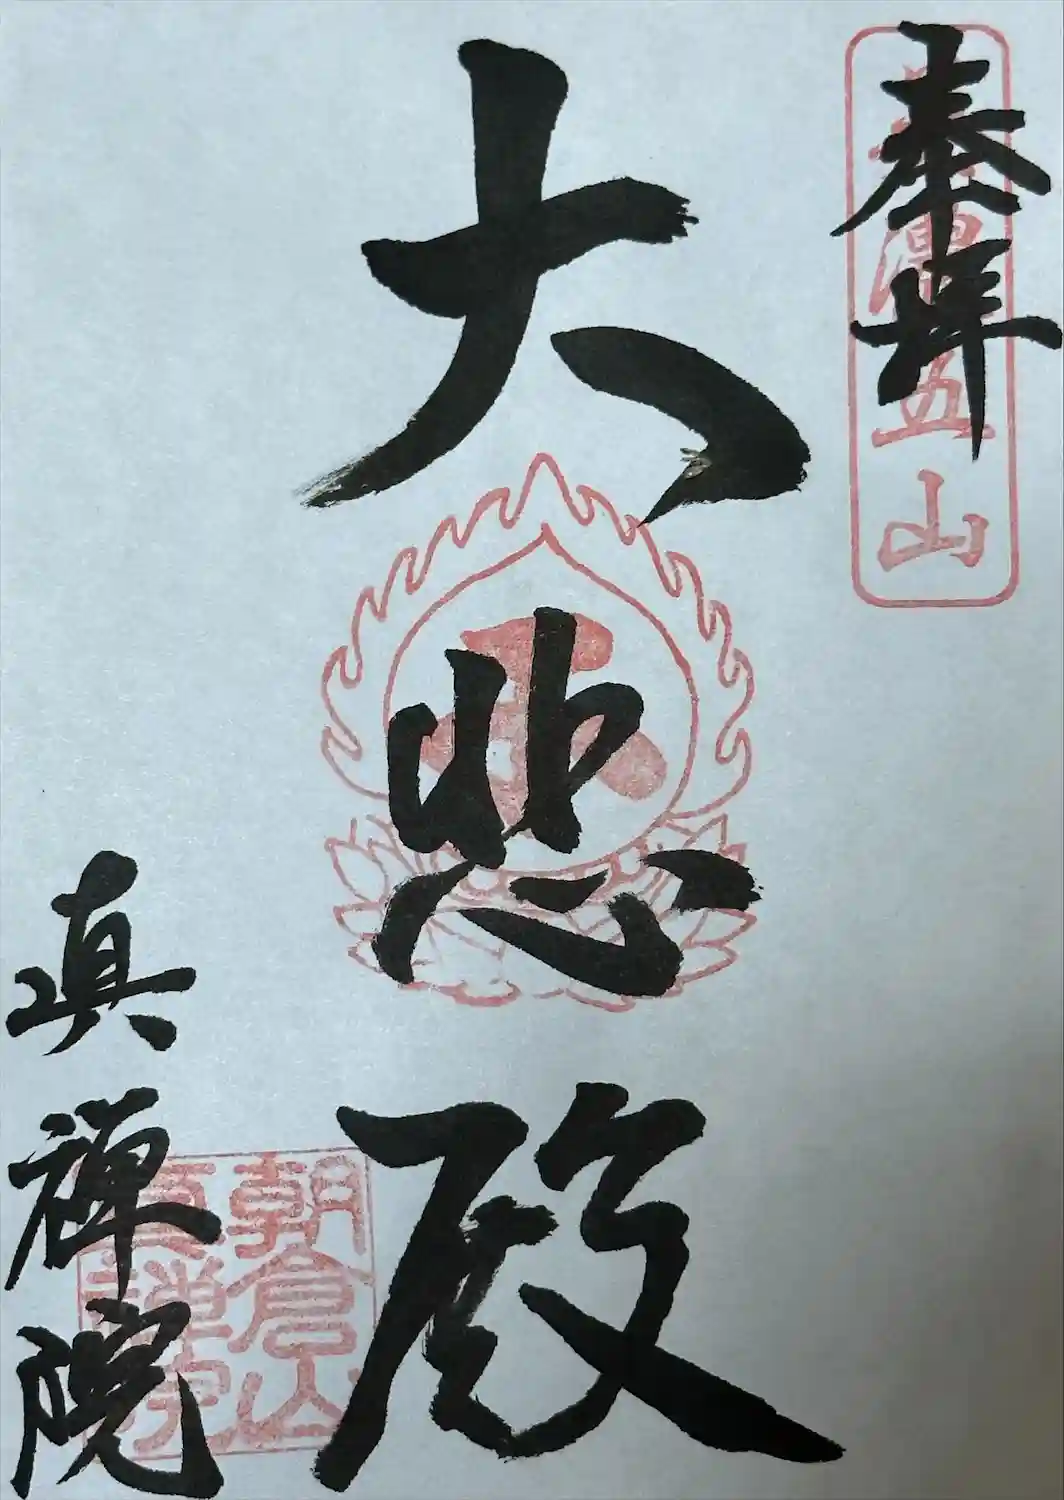 奉拝
五山
大悲殿
朝倉山
真禅院
真禅院